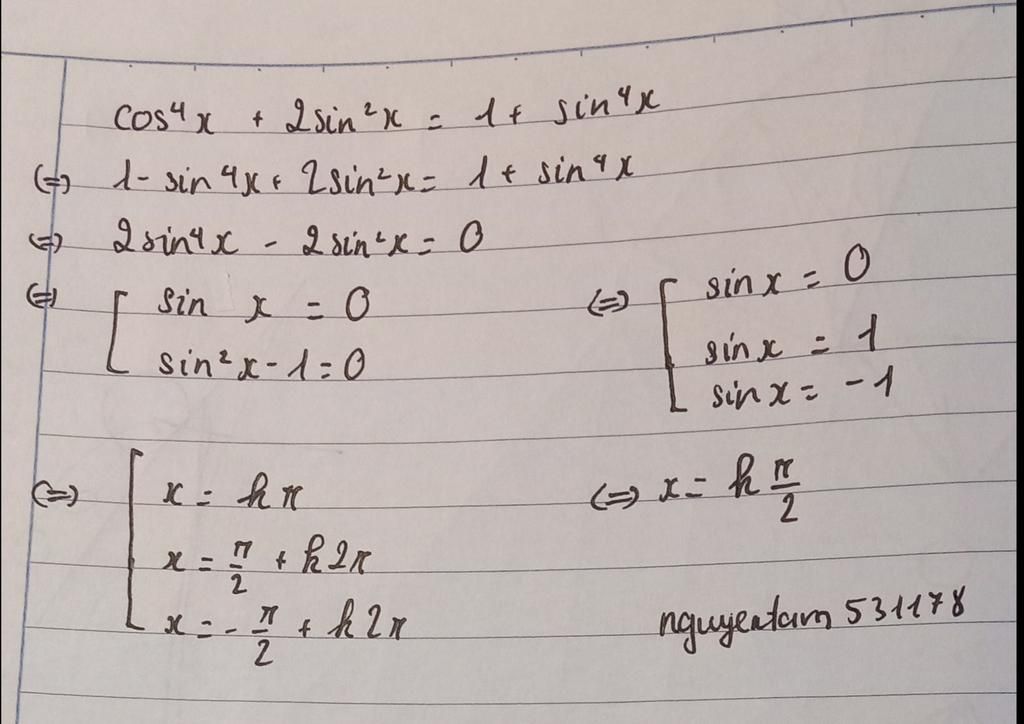 cos⁴x + 2sin²x = 1 + sin⁴x
(=) 1 - sin⁴x + 2sin²x = 1 + sin⁴x
(=) 2sin⁴x - 2sin²x = 0
(=) [ sin x = 0
sin²x - 1 = 0
(=) [ sin x = 0
sin x = 1
sin x = -1
(=) [ x = kπ
x = π/2 + k2π
x = -π/2 + k2π
(=) x = k π/2
nguyentam 531178